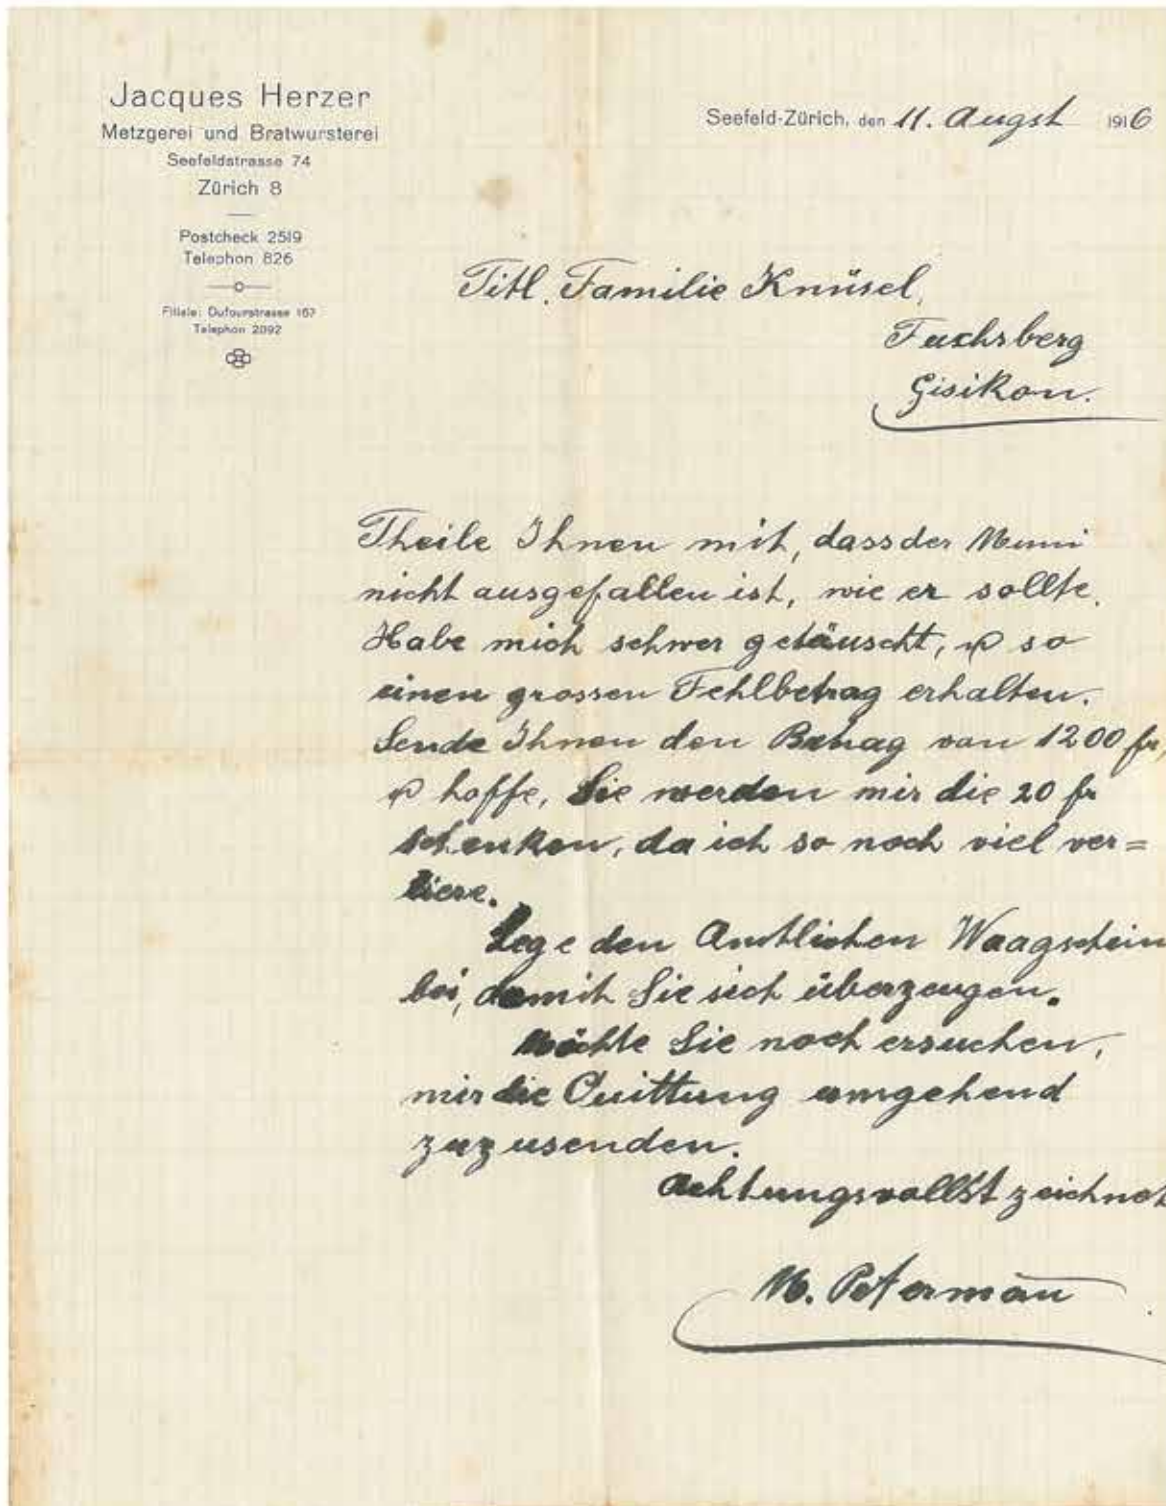 Jacques Herzer
Metzgerei und Bratwursterei
Seefeldstrasse 74
Zürich 8
Postcheck 2519
Telephon 826
Filiale: Dufourstrasse 167
Telephon 2092
Seefeld-Zürich, den 11. Augst 1916
Titl. Familie Knüsel,
Fuchsberg
Gisikon.
Theile Ihnen mit, dass der Muni
nicht ausgefallen ist, wie er sollte.
Habe mich schwer getäuscht, & so
einen grossen Fehlbetrag erhalten.
Sende Ihnen den Betrag von 1200 fr,
& hoffe, Sie werden mir die 20 fr
schenken, da ich so noch viel ver=
liere.
Lege den Amtlichen Waagschein
bei, damit Sie sich überzeugen.
Möchte Sie noch ersuchen,
mir die Quittung umgehend
zuzusenden.
Achtungsvollst zeichnet
M. Petermāu